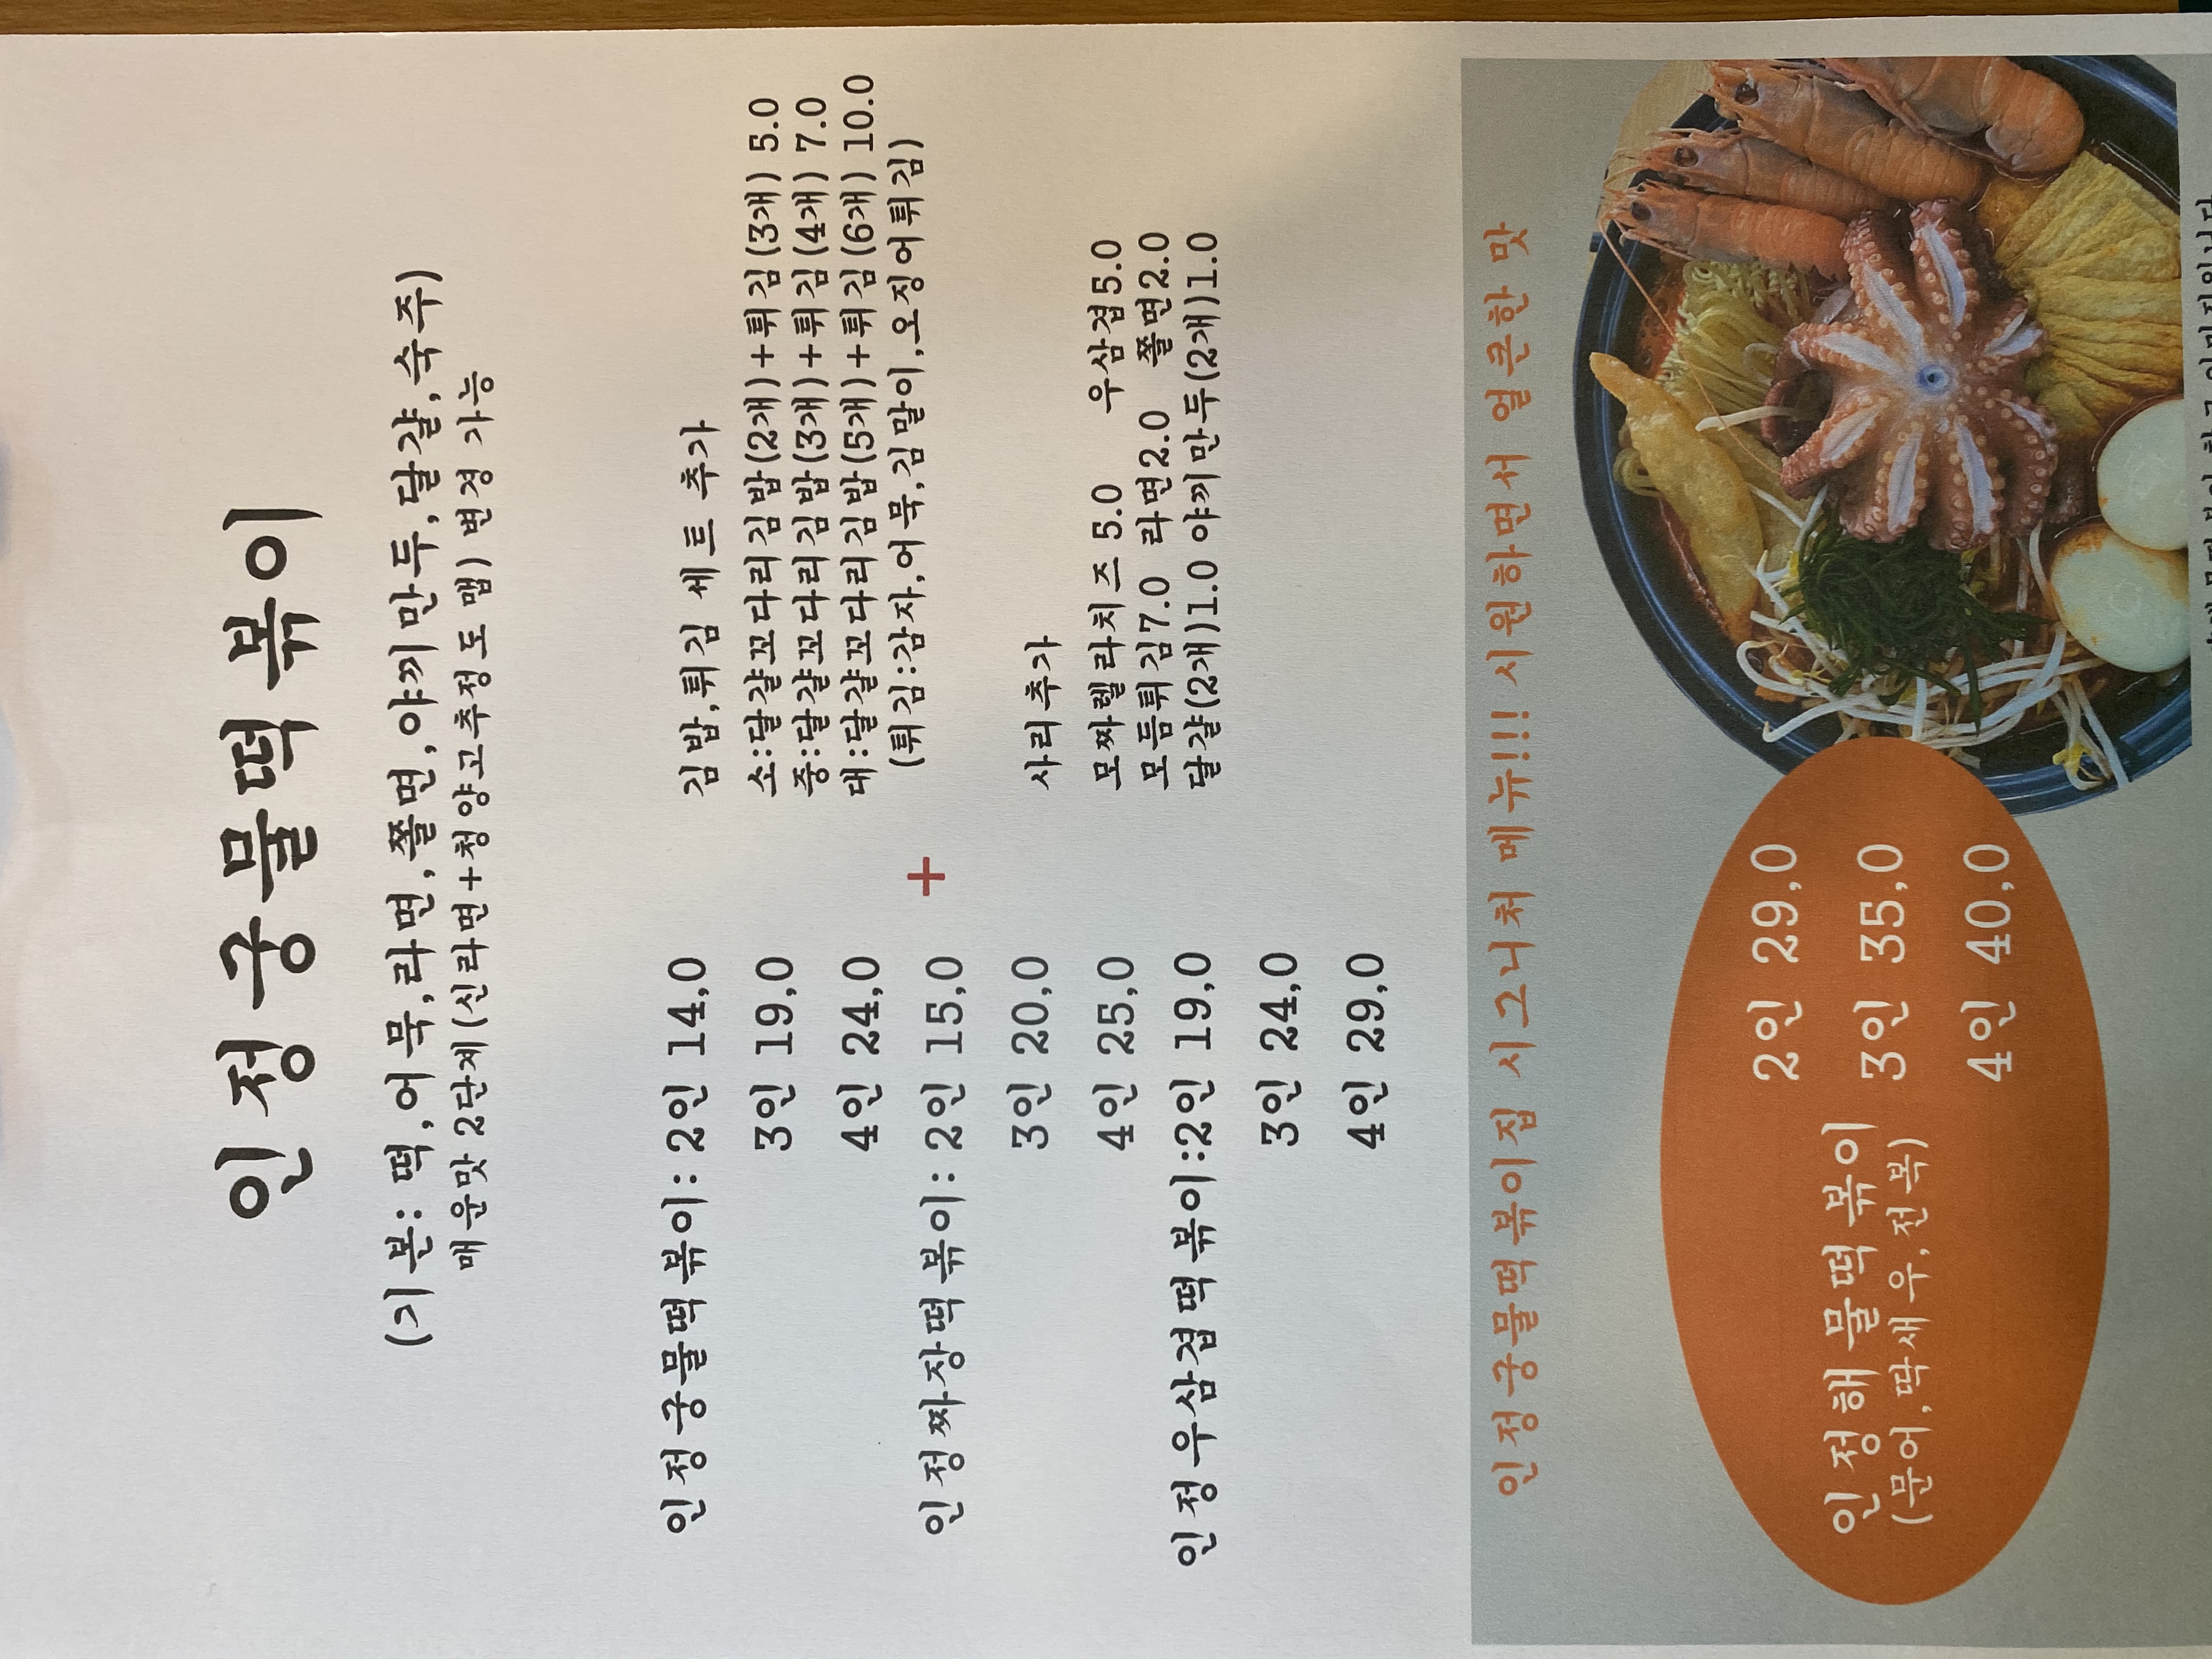 인정궁물떡볶이
(기본: 떡,어묵,라면,쫄면,야끼만두,달걀,숙주)
매운맛 2단계(신라면+청양고추정도 맵) 변경 가능
인정궁물떡볶이: 2인 14,0
3인 19,0
4인 24,0
인정짜장떡볶이: 2인 15,0
3인 20,0
4인 25,0
인정우삼겹떡볶이:2인 19,0
3인 24,0
4인 29,0
+
김밥,튀김 세트 추가
소:달걀꼬다리김밥(2개)+튀김(3개) 5.0
중:달걀꼬다리김밥(3개)+튀김(4개) 7.0
대:달걀꼬다리김밥(5개)+튀김(6개) 10.0
(튀김:감자,어묵,김말이,오징어튀김)
사리추가
모짜렐라치즈 5.0 우삼겹5.0
모듬튀김7.0 라면2.0 쫄면2.0
달걀(2개)1.0 야끼만두(2개)1.0
인정궁물떡볶이집 시그니처 메뉴!!! 시원하면서 얼큰한 맛
인정해물떡볶이
(문어,딱새우,전복)
2인 29,0
3인 35,0
4인 40,0